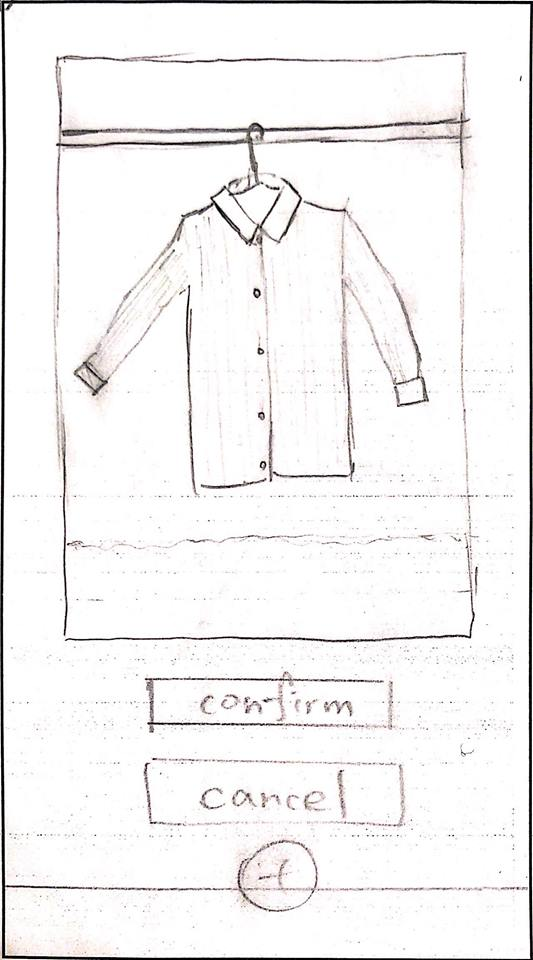 confirm
cancel